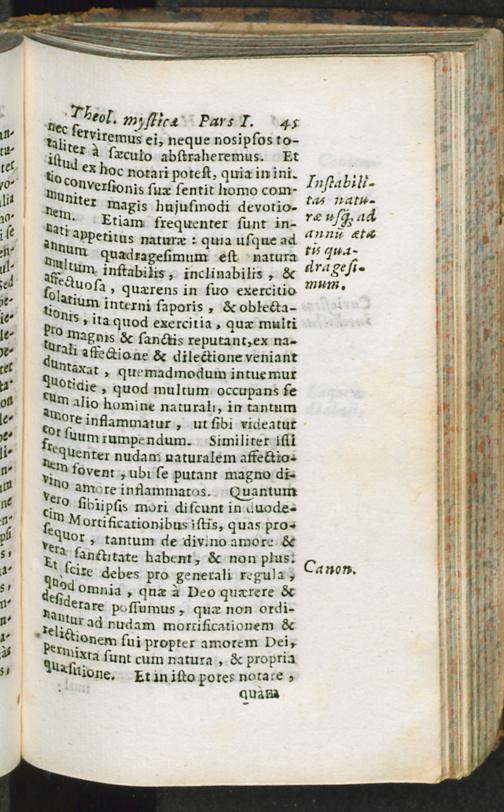 Theol. mysticæ Pars I. 45
nec serviremus ei, neque nosipsos to-
taliter à sæculo abstraheremus. Et
istud ex hoc notari potest, quia in ini-
tio conversionis suæ sentit homo com-
muniter magis hujusmodi devotio-
nem. Etiam frequenter sunt in-
nati appetitus naturæ: quia usque ad
annum quadragesimum est natura
multum instabilis, inclinabilis, &
affectuosa, quærens in suo exercitio
solatium interni saporis, & oblecta-
tionis, ita quod exercitia, quæ multi
pro magnis & sanctis reputant, ex na-
turali affectione & dilectione veniant
duntaxat, quemadmodum intuemur
quotidie, quod multum occupans se
cum alio homine naturali, in tantum
amore inflammatur, ut sibi videatur
cor suum rumpendum. Similiter isti
frequenter nudam naturalem affectio-
nem fovent, ubi se putant magno di-
vino amore inflammatos. Quantum
vero sibiipsis mori discunt in duode-
cim Mortificationibus istis, quas pro-
sequor, tantum de divino amore &
vera sanctitate habent, & non plus.
Et scire debes pro generali regula,
quod omnia, quæ à Deo quærere &
desiderare possumus, quæ non ordi-
nantur ad nudam mortificationem &
relictionem sui propter amorem Dei,
permixta sunt cum natura, & propria
quæsitione. Et in isto potes notare,
quàm
Instabili-
tas natu-
ræ usq; ad
annū æta
tis qua-
dragesi-
mum.
Canon.